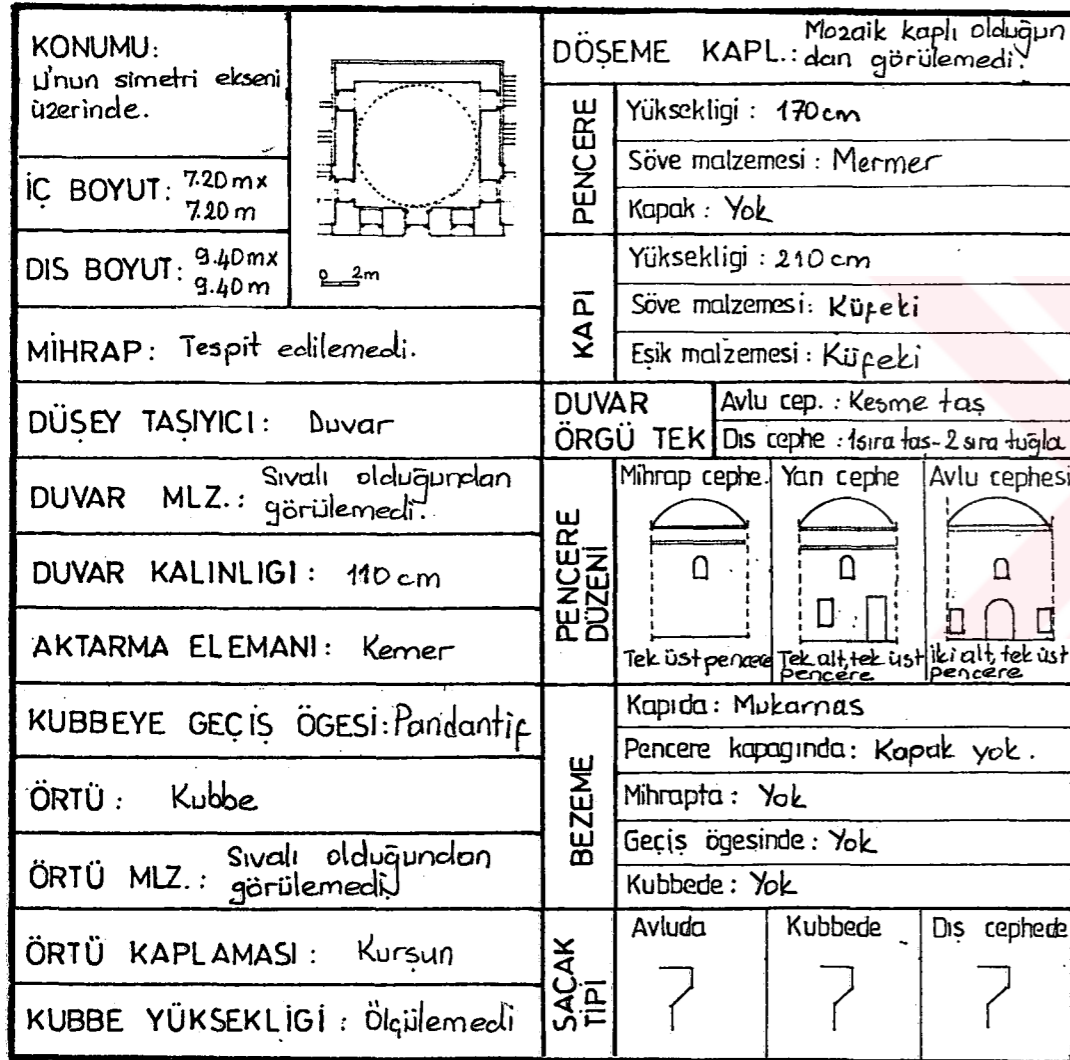 KONUMU:
U'nun simetri ekseni
üzerinde.
İÇ BOYUT: 7.20 m x
7.20 m
DIS BOYUT: 9.40 m x
9.40 m
0 2m
MİHRAP: Tespit edilemedi.
DÜŞEY TAŞIYICI: Duvar
DUVAR MLZ.: Sıvalı olduğundan
görülemedi.
DUVAR KALINLIGI: 110 cm
AKTARMA ELEMANI: Kemer
KUBBEYE GEÇİŞ ÖGESİ: Pandantif
ÖRTÜ: Kubbe
ÖRTÜ MLZ.: Sıvalı olduğundan
görülemedi
ÖRTÜ KAPLAMASI: Kurşun
KUBBE YÜKSEKLİGİ: Ölçülemedi
DÖŞEME KAPL.: Mozaik kaplı olduğun
dan görülemedi.
PENCERE
Yüksekligi: 170 cm
Söve malzemesi: Mermer
Kapak: Yok
KAPI
Yüksekligi: 210 cm
Söve malzemesi: Küfeki
Eşik malzemesi: Küfeki
DUVAR
ÖRGÜ TEK
Avlu cep.: Kesme taş
Dıs cephe: 1sıra tas-2 sıra tuğla
PENCERE
DÜZENİ
Mihrap cephe.
Tek üst pencere
Yan cephe
Tek alt, tek üst
pencere
Avlu cephesi
iki alt, tek üst
pencere
BEZEME
Kapıda: Mukarnas
Pencere kapagında: Kapak yok.
Mihrapta: Yok
Geçiş ögesinde: Yok
Kubbede: Yok
SACAK
TİPİ
Avluda
Kubbede
Dış cephede